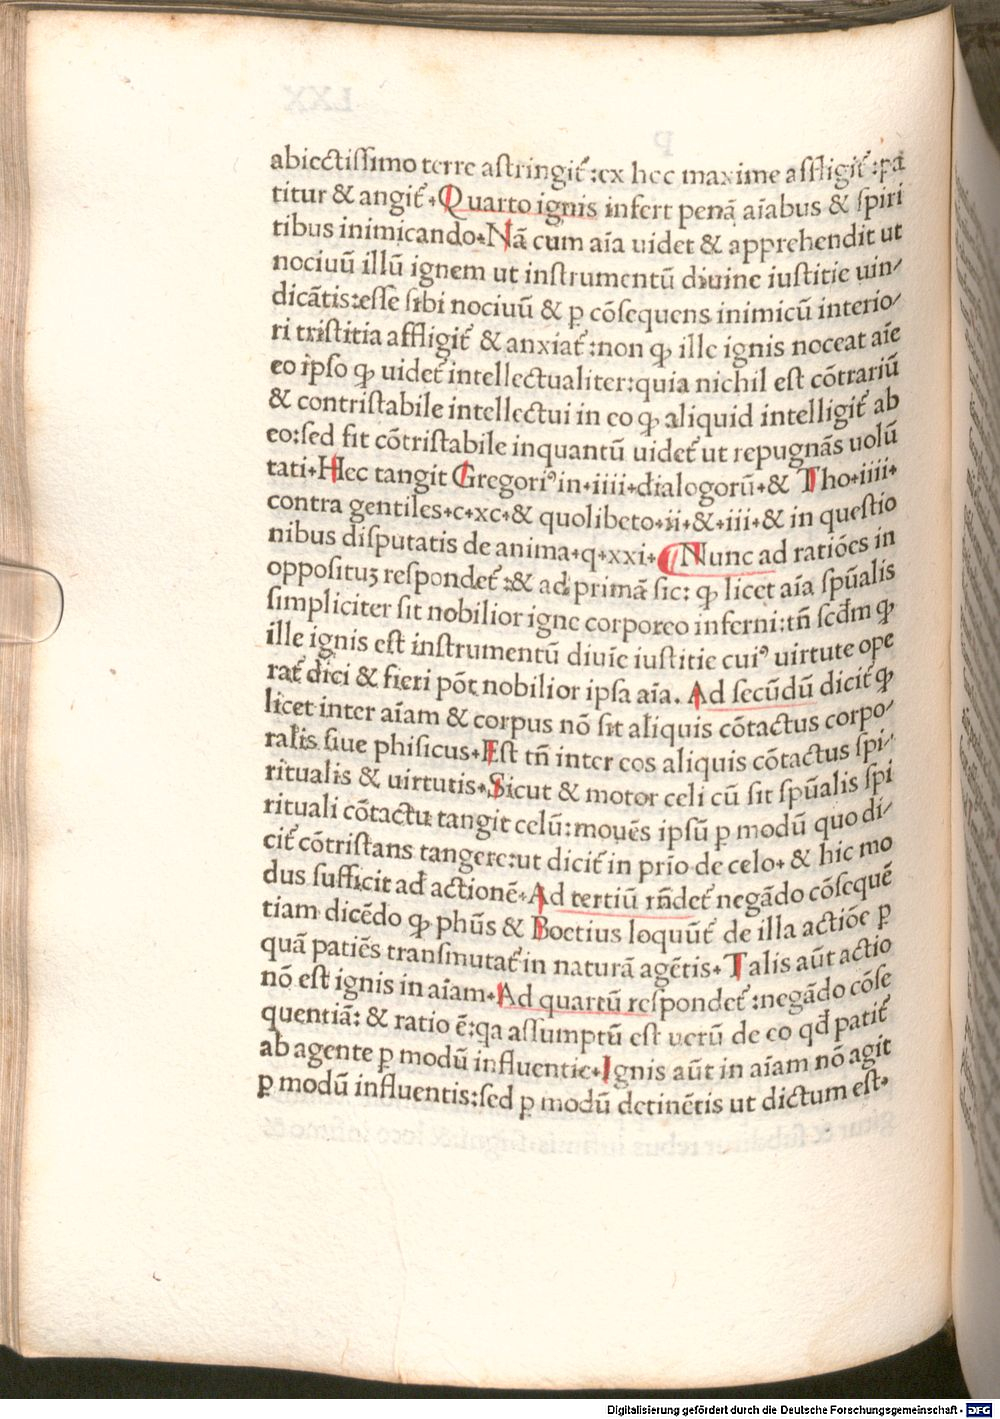 abiectissimo terre astringit᷑:ex hec maxime affligit᷑:pa
titur & angit᷑. Quarto ignis infert penā aīabus & spiri
tibus inimicando. Nā cum aīa uidet & apprehendit ut
nociuū illū ignem ut instrumentū diuine iustitie uin/
dicātis:esse sibi nociuū & ꝑ cōsequens inimicū interio/
ri tristitia affligit᷑ & anxiat᷑:non ꝙ ille ignis noceat aīe
eo ipso ꝙ uidet᷑ intellectualiter:quia nichil est cōtrariū
& contristabile intellectui in eo ꝙ aliquid intelligit᷑ ab
eo:sed fit cōtristabile inquantū uidet᷑ ut repugnās uolū
tati. Hec tangit Gregoriꝰ in.iiii.dialogorū.& Tho.iiii.
contra gentiles.c.xc.& quolibeto.ii.&.iii.& in questio
nibus disputatis de anima.q.xxi. ¶ Nunc ad ratiōes in
opposituꝫ respondet᷑:& ad primā sic: ꝙ licet aīa sp̄ualis
simpliciter sit nobilior igne corporeo inferni:tn̄ scd̄m ꝙ
ille ignis est instrumentū diuīe iustitie cuiꝰ uirtute ope
rat᷑ dici & fieri pōt nobilior ipsa aīa. Ad secūdū dicit᷑ ꝙ
licet inter aīam & corpus nō sit aliquis cōtactus corpo/
ralis siue phisicus. Est tn̄ inter eos aliquis cōtactus spi/
ritualis & uirtutis. Sicut & motor celi cū sit sp̄ualis spi
rituali cōtactu tangit celū:mouēs ipsū ꝑ modū quo di/
cit᷑ cōtristans tangere:ut dicit᷑ in prīo de celo. & hic mo
dus sufficit ad actionē. Ad tertiū rn̄det᷑ negādo cōsequē
tiam dicēdo ꝙ phūs & Boetius loquūt᷑ de illa actiōe ꝑ
quā patiēs transmutat᷑ in naturā agētis. Talis aūt actio
nō est ignis in aīam. Ad quartū respondet᷑:negādo cōse
quentiā: & ratio ē:qa assumptū est uerū de eo qd̄ patit᷑
ab agente ꝑ modū influentie. Ignis aūt in aīam nō agit
ꝑ modū influentis:sed ꝑ modū detinētis ut dictum est.
Digitalisierung gefördert durch die Deutsche Forschungsgemeinschaft - DFG